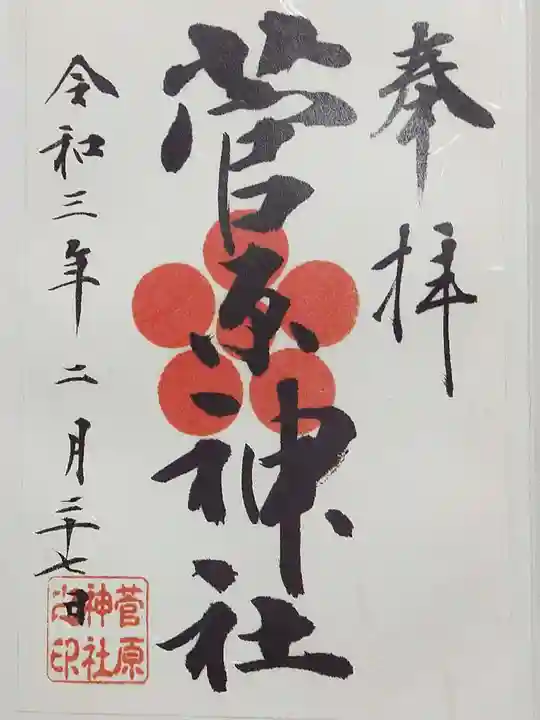 奉拝
菅原神社
令和三年二月二十七日
菅原
神社
之印